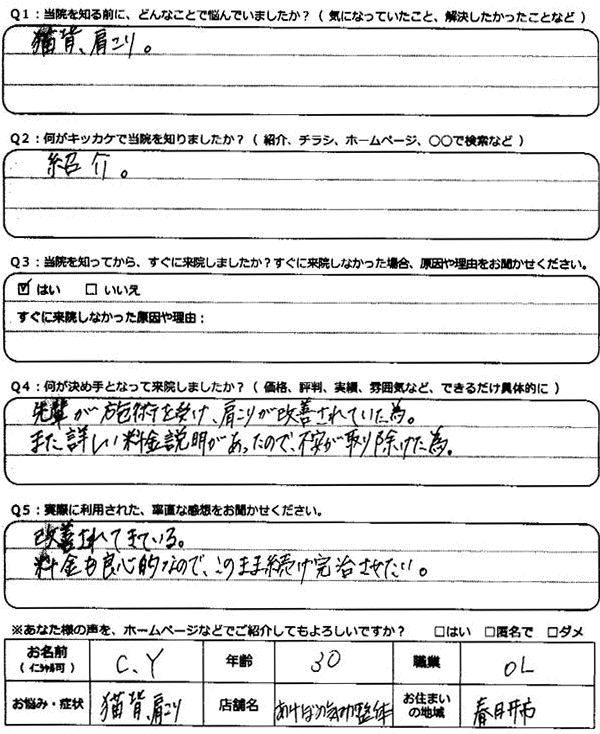 Q1：当院を知る前に、どんなことで悩んでいましたか？（ 気になっていたこと、解決したかったことなど ）
猫背、肩こり。
Q2：何がキッカケで当院を知りましたか？（ 紹介、チラシ、ホームページ、○○で検索など ）
紹介。
Q3：当院を知ってから、すぐに来院しましたか？すぐに来院しなかった場合、原因や理由をお聞かせください。
☑ はい □ いいえ
すぐに来院しなかった原因や理由：
Q4：何が決め手となって来院しましたか？（ 価格、評判、実績、雰囲気など、できるだけ具体的に ）
先輩が施術を受け、肩こりが改善されていた為。
また詳しい料金説明があったので、不安が取り除けた為。
Q5：実際に利用された、率直な感想をお聞かせください。
改善されてきている。
料金も良心的なので、このまま続け完治させたい。
※あなた様の声を、ホームページなどでご紹介してもよろしいですか？ □はい □匿名で □ダメ
お名前 （イニシャル可） C、Y 年齢 30 職業 OL
お悩み・症状 猫背、肩こり 店舗名 あけぼの気功整体 お住まいの地域 春日井市